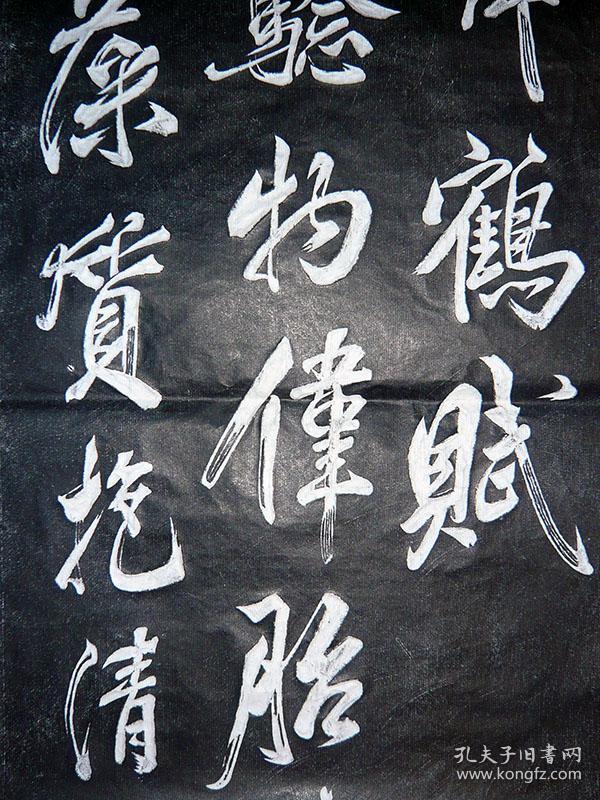 鶴賦
騐物偉胎
藻質抱清
孔夫子旧書网
www.kongfz.com